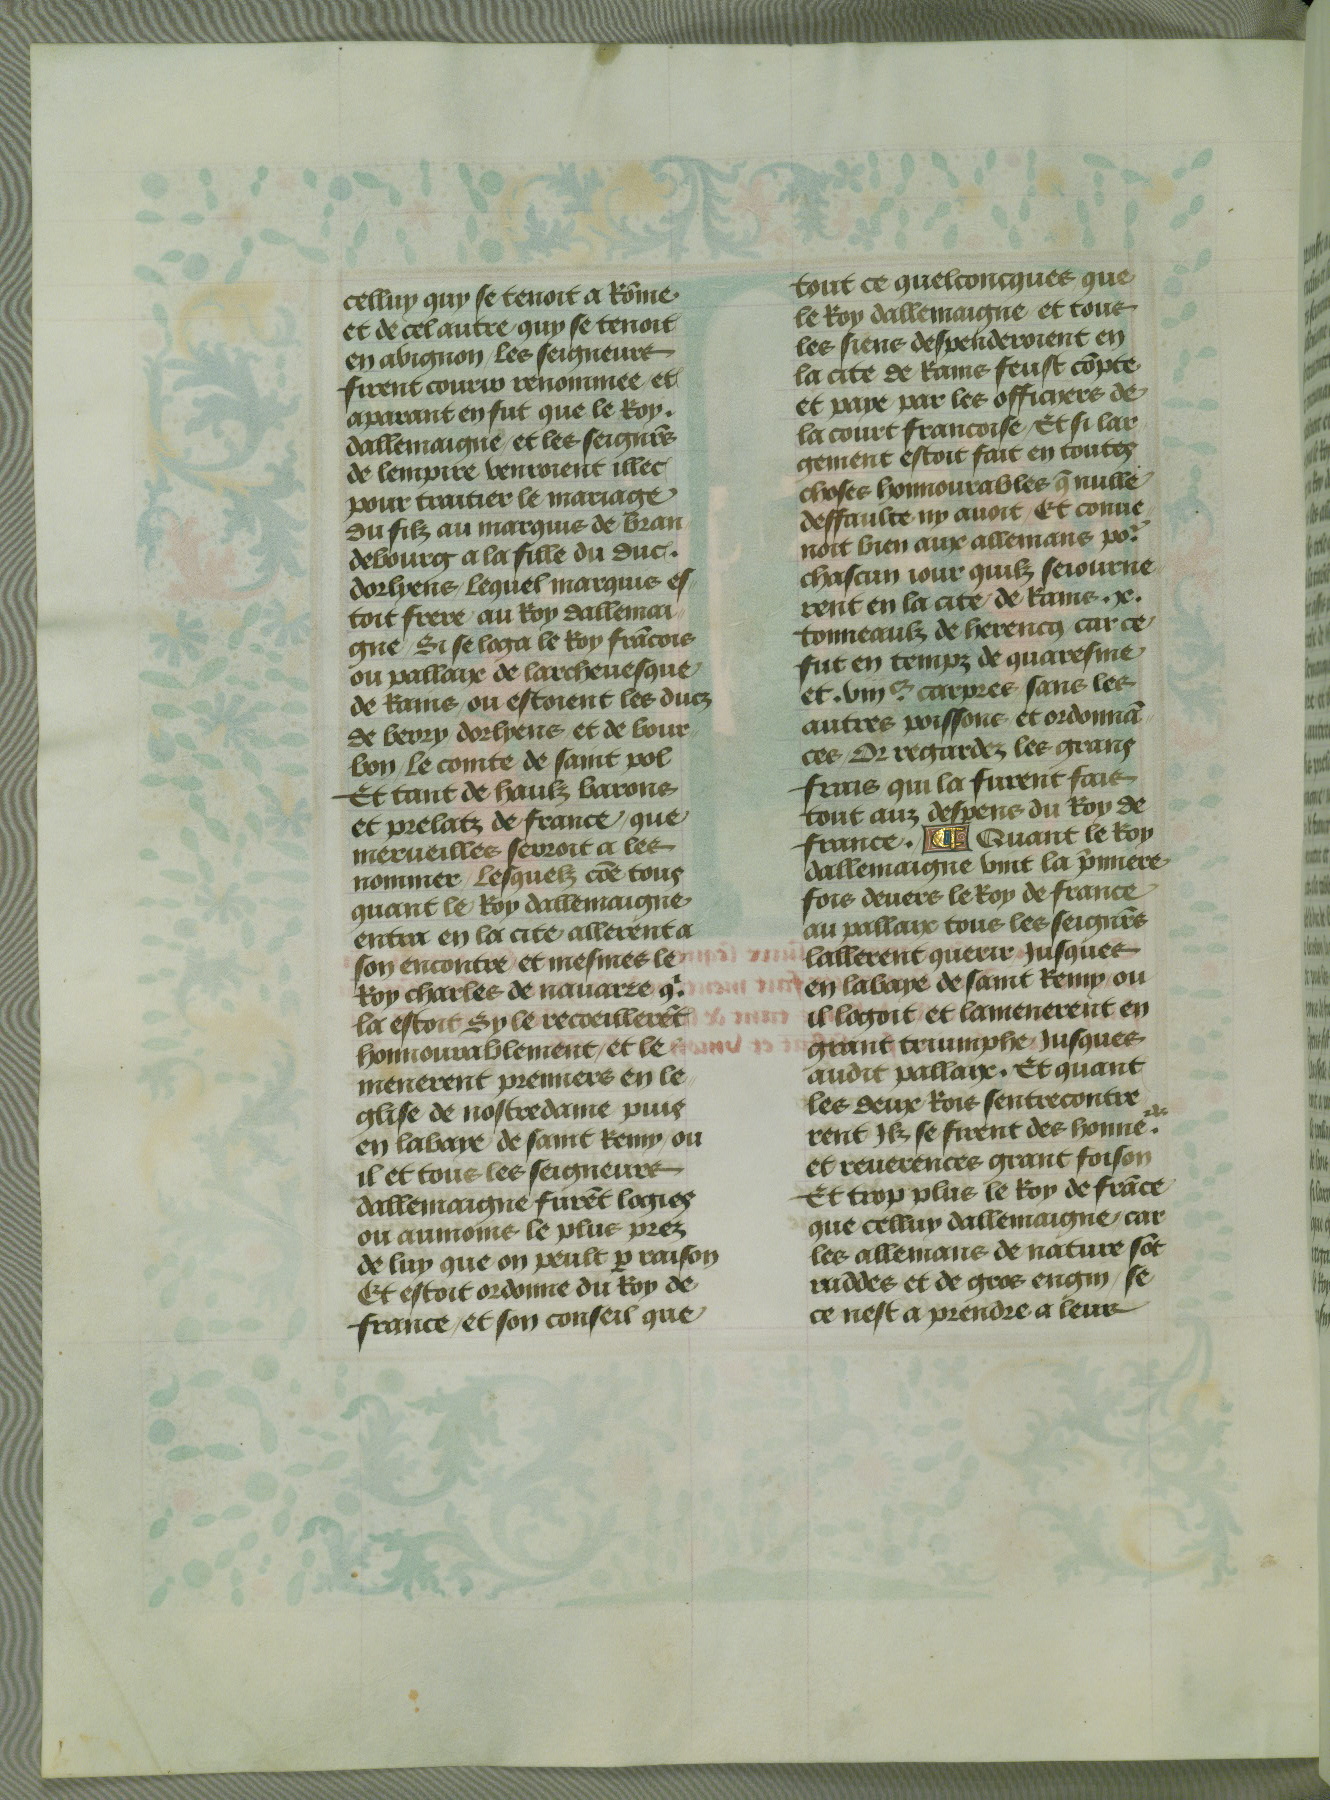 celluy quy se tenoit a Rōme
et de cel autre quy se tenoit
en avignon Les seigneurs
firent courir renommee et
aparant en fut que le Roy.
dallemaigne et les seignr̄s
de lempire venroient illec
pour traitier le mariage
du filz au marquis de bran
debourg a la fille du duc.
dorlyens lequel marquis es
toit frere au Roy dallemai
gne Si se loga le Roy frācois
ou pallaix de larcheuesque
de Rains ou estoient les ducz
de berry dorlyens et de bour
bon le comte de saint pol
Et tant de haulz barons
et prelatz de france que
merueilles seroit a les
nommer Lesquelz cōe tous
quant le Roy dallemaigne
entra en la cite allerent a
son encontre et mesmes le
Roy charles de nauarre qͥ
la estoit Sy le recoeullerēt
honnourablement et le
menerent premiers en le
glise de nostredame puis
en labaye de saint Remy ou
il et tous les seigneurs
dallemaigne furēt logies
ou aumoins le plus prez
de luy que on peult ꝑ raison
Et estoit ordonne du Roy de
france et son conseil que
tout ce quelconcques que
le Roy dallemaigne et tous
les siens despenderoient en
la cite de Rains feust cōpte
et paye par les officyers de
la court francoise Et si lar
gement estoit fait en toutes
choses honnourables q̄ nulle
deffaulte ny auoit Et conue
noit bien aux allemans poͬ
chascun iour quilz seiourne
rent en la cite de Rains .x.
tonneaulz de herencq car ce
fut en tempz de quaresme
et .viij c. carpres sans les
autres poissons et ordonnā
ces Or regardez les grans
frais qui la furent fais
tout aux despens du Roy de
france. Quant le Roy
dallemaigne vint la p̄miere
fois deuers le Roy de france
au pallaix tous les seignr̄s
lallerent querir Jusques
en labaye de saint Remy ou
il logoit et lamenerent en
grant triumphe Jusques
audit pallaix. Et quant
les deux Rois sentrecontre
rent Jlz se firent des honne.
et reuerences grant foison
Et trop plus le Roy de frāce
que celluy dallemaigne car
les allemans de nature sōt
ruddes et de gros engin se
ce nest a prendre a leur